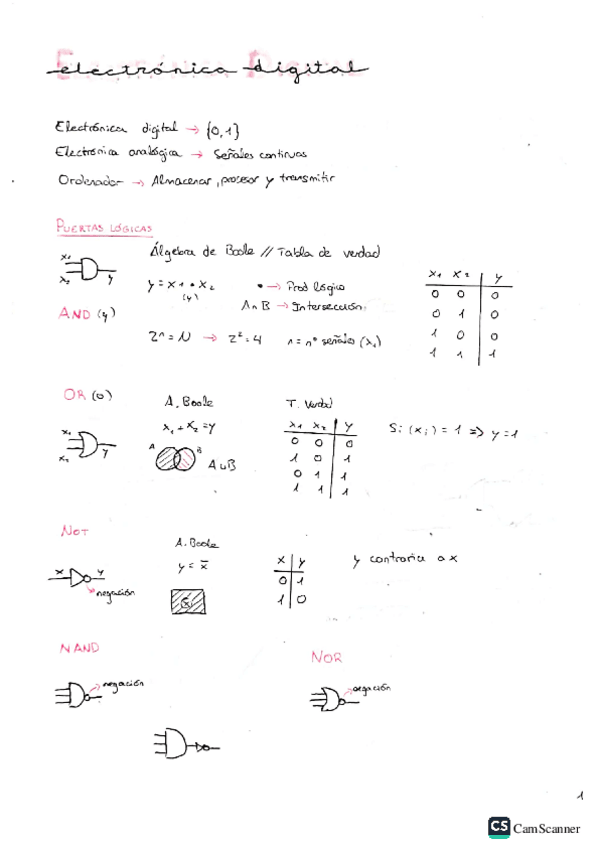 electrónica digital
Electrónica digital → {0,1}
Electrónica analógica → Señales continuas
Ordenador → Almacenar, procesar y transmitir
PUERTAS LÓGICAS
Álgebra de Boole // Tabla de verdad
x1
x2
y
y = x1 • x2
(y)
• → Prod lógico
A∩B → Intersección
AND (y)
2ⁿ = N → 2² = 4 n = nº señales (x1)
x1 x2 y
0 0 0
0 1 0
1 0 0
1 1 1
OR (o)
A. Boole
T. Verdad
x1
x2
y
x1 + x2 = y
A B
A∪B
x1 x2 y
0 0 0
1 0 1
0 1 1
1 1 1
Si (xi) = 1 ⇒ y = 1
NOT
A. Boole
x y
negación
y = x̄
x y
0 1
1 0
y contraria a x
NAND
negación
NOR
negación
1
CS CamScanner